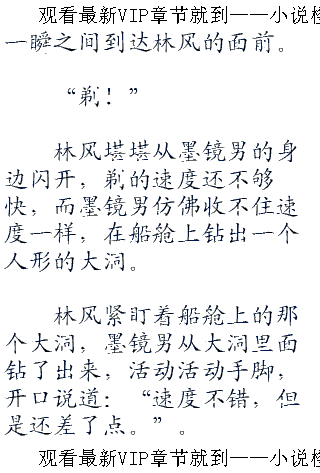 观看最新VIP章节就到——小说
一瞬之间到达林风的面前。
“剃！”
林风堪堪从墨镜男的身
边闪开，剃的速度还不够
快，而墨镜男仿佛收不住速
度一样，在船舱上钻出一个
人形的大洞。
林风紧盯着船舱上的那
个大洞，墨镜男从大洞里面
钻了出来，活动活动手脚，
开口说道：“速度不错，但
是还差了点。”。
观看最新VIP章节就到——小说